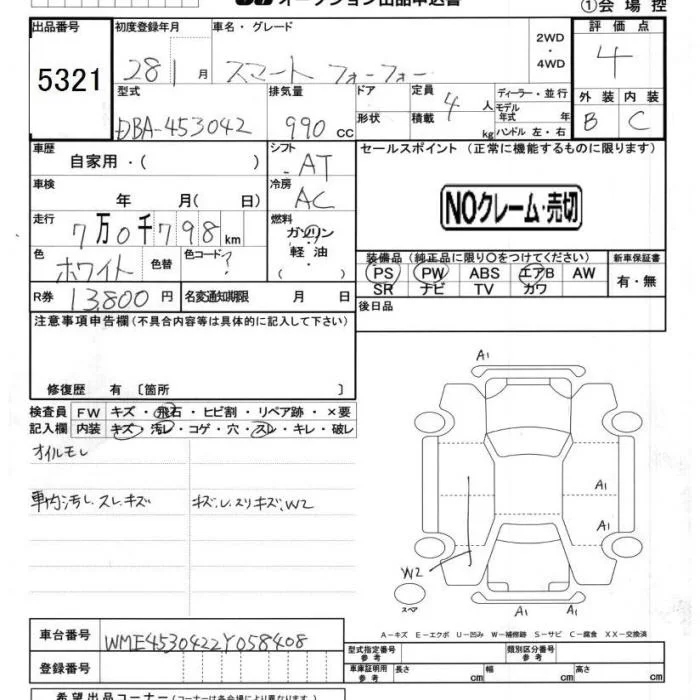 オークション出品申込書
①会場控
出品番号 初度登録年月 車名・グレード 2WD・4WD 評価点
5321 28 1月 スマート フォーフォー 4
型式 排気量 ドア 定員 4人 ディーラー・並行 外装 内装
形状 積載 kg モデル年式 年
DBA-453042 990cc ハンドル 左・右 B C
車歴 自家用・( ) シフト AT セールスポイント (正常に機能するものに限ります)
車検 年 月( 日) 冷房 AC
NOクレーム・売切
走行 7万0千798km 燃料 ガソリン 軽油 ( ・ )
色 ホワイト 色替 色コード ? 装備品 (純正品に限り○をつけてください) 新車保証書
PS PW ABS エアB AW 有・無
SR ナビ TV カワ
R券 13,800円 名変通知期限 月 日 後日品
注意事項申告欄 (不具合内容等は具体的に記入して下さい)
修復歴 有 〔箇所 〕
検査員 FW キズ・飛石・ヒビ割・リペア跡・×要
記入欄 内装 キズ・汚レ・コゲ・穴・スレ・キレ・破レ
オイルモレ
車内汚レ.スレ.キズ キズ.U.スリキズ.W2
A1
A1
A1
W2
スペア
A1 A1
A-キズ E-エクボ U-凹み W-補修跡 S-サビ C-腐食 XX-交換済
車台番号 WME4530422Y058408
型式指定番号 参考 類別区分番号 参考
登録番号 車庫証明用 参考 長さ cm 幅 cm 高さ cm
希望出品コーナー (コーナーは各会場により異なります。)